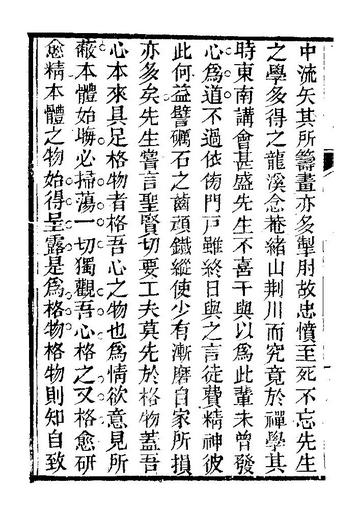 中流矢其所籌畫亦多掣肘故忠憤至死不忘先生
之學多得之龍溪念菴緒山荆川而究竟於禪學其
時東南講會甚盛先生不喜干與以爲此輩未曾發
心爲道不過依傍門戶雖終日與之言徒費精神彼
此何益譬礪石之齒頑鐵縱使少有漸磨自家所損
亦多矣先生嘗言聖賢切要工夫莫先於格物蓋吾
心本來具足格物者格吾心之物也爲情欲意見所
蔽本體始晦必掃蕩一切獨觀吾心格之又格愈研
愈精本體之物始得呈露是爲格物格物則知自致